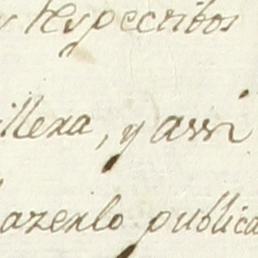 y respecritos
illexa, y assi
hazexlo publica